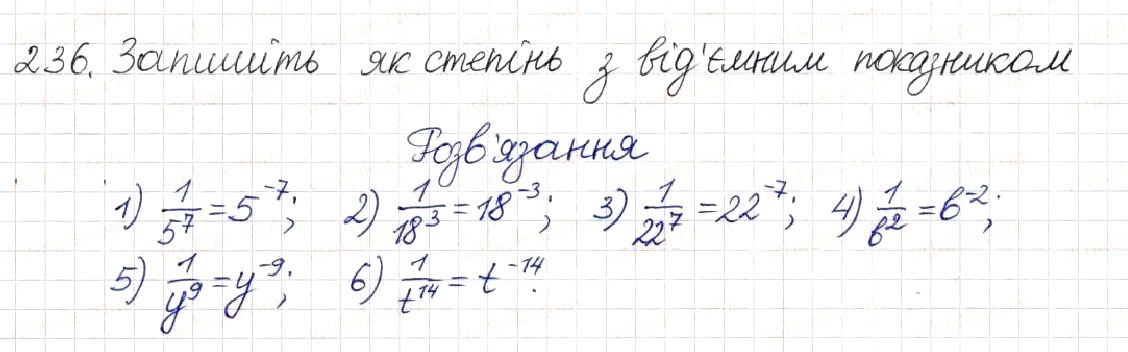 236. Запишіть як степінь з від'ємним показником
Розв'язання
1) 1/5⁷ = 5⁻⁷; 2) 1/18³ = 18⁻³; 3) 1/22⁷ = 22⁻⁷; 4) 1/b² = b⁻²;
5) 1/y⁹ = y⁻⁹; 6) 1/t¹⁴ = t⁻¹⁴.